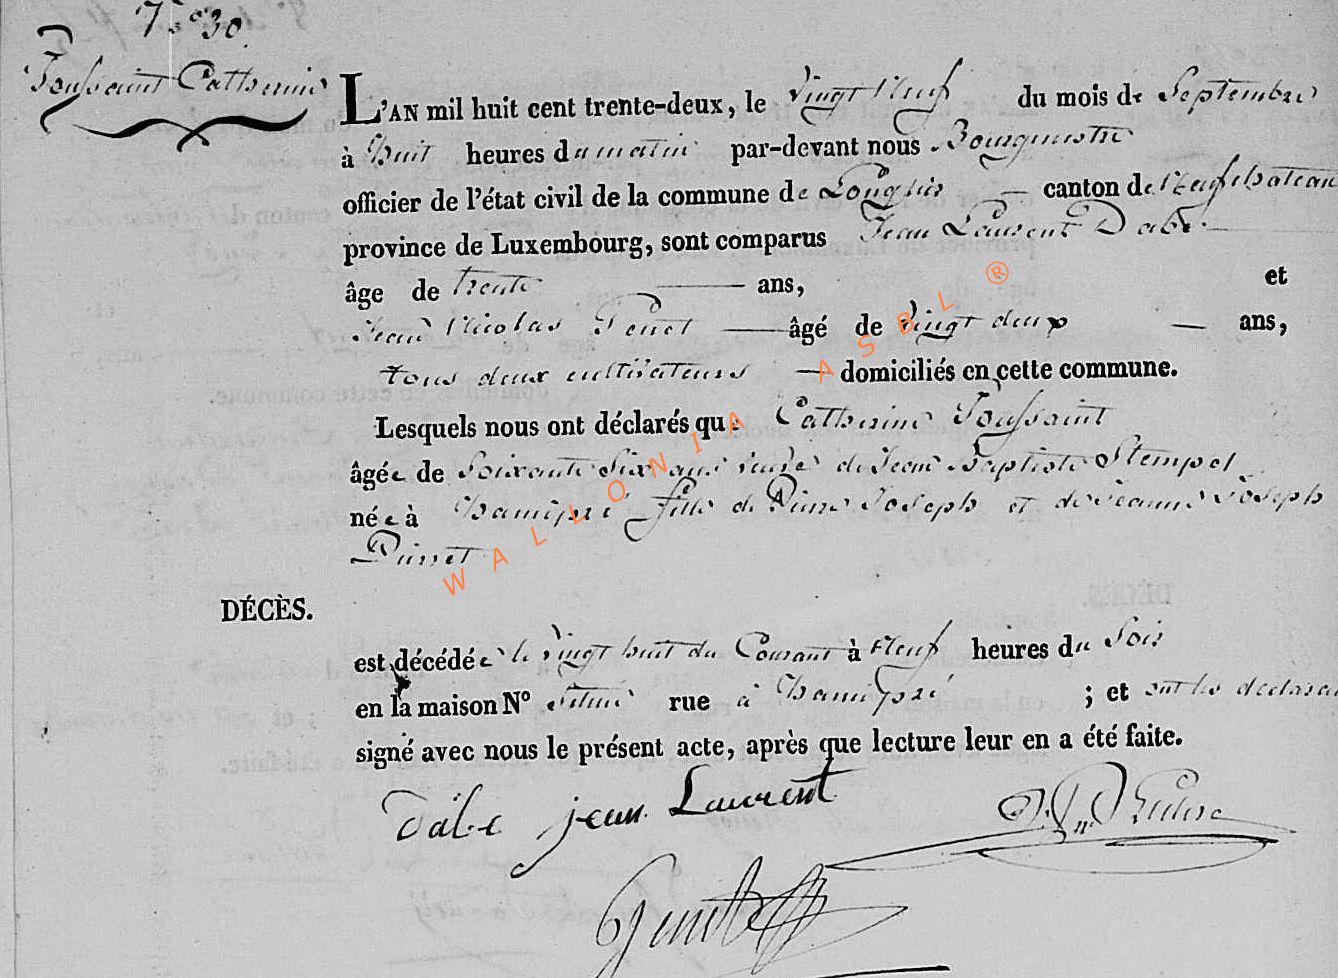 N° 30
Toussaint Catherine
L'AN mil huit cent trente-deux, le vingt Neuf du mois de Septembre
à huit heures du matin par-devant nous Bourgmestre
officier de l'état civil de la commune de Longlier — canton de Neufchateau
province de Luxembourg, sont comparus Jean Laurent Dabe
âge de trente — ans, et
Jean Nicolas — âgé de vingt deux — ans,
tous deux cultivateurs — domiciliés en cette commune.
Lesquels nous ont déclarés que Catherine Toussaint
âgée de Soixante Six ans veuve de Jean Baptiste Stempel
née à hamipré fille de Pierre Joseph et de Jeanne Joseph
DÉCÈS.
est décédée le vingt huit du Courant à Neuf heures du Soir
en la maison N° située rue à hamipré ; et ont les déclarans
signé avec nous le présent acte, après que lecture leur en a été faite.
Dabe jean Laurent
WALLONIA ASBL ®